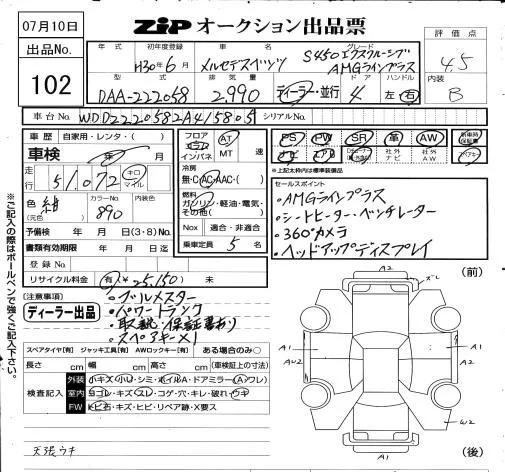 07月10日
ZiP オークション出品票
出品No.
102
年式 初年度登録 車名 グレード
H30年6月 メルセデスベンツ S450エクスクルーシブ
AMGラインプラス
型式 排気量 ドア ハンドル
DAA-222058 2,990 ディーラー・並行 4 左・右
評価点
4.5
内装
B
車台No. WDD2220582A415805 シリアルNo.
車歴 自家用・レンタ・( )
車検 年 月
走行 51,072 キロ マイル
色 (元色) 紺 カラーNo. 890 内装色
予備検 年 月 日(3・8)No.
書類有効期限 年 月 日迄
登録No.
リサイクル料金 有(¥25,150) 未
フロア コラム インパネ AT MT 速
冷房
無・C・AC・AAC・( )
燃料
ガソリン・軽油・電気・その他( )
Nox 適合・非適合
乗車定員 5名
PS PW SR 革 AW 新車時保証書
ナビ エアB 社外ナビ 社外AW
※上記太枠内は標準装備品
セールスポイント
・AMGラインプラス
・シートヒーター・ベンチレーター
・360°カメラ
・ヘッドアップディスプレイ
(注意事項)
ディーラー出品
・ブルメスター
・パワートランク
・取説・保証書あり
・スペアキー×1
スペアタイヤ[有] ジャッキ工具[有] AWロックキー[有] ある場合のみ○
長さ cm 幅 cm 高さ cm (車検証上の寸法)
検査記入
外装 小キズ・小U・シミ・ホイルA・ドアミラー(A・ワレ)
室内 ヨゴレ・キズ・スレ・コゲ・穴・キレ・破れ・ウキ
FW トビ石・キズ・ヒビ・リペア跡・X要ス
天張ウキ
※ご記入の際はボールペンで強くご記入下さい。
(前)
A2
A1
A4U2
A1
A1
W2
A2
A1
(後)